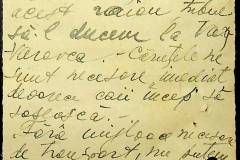 acest raion trebue
să-l ducem la Vas
Varovca. - Cămțele ne
sunt necesare imediat
deoarece caii încep să
slăbească. -
Fără mijloace necesare
de transport, nu putem